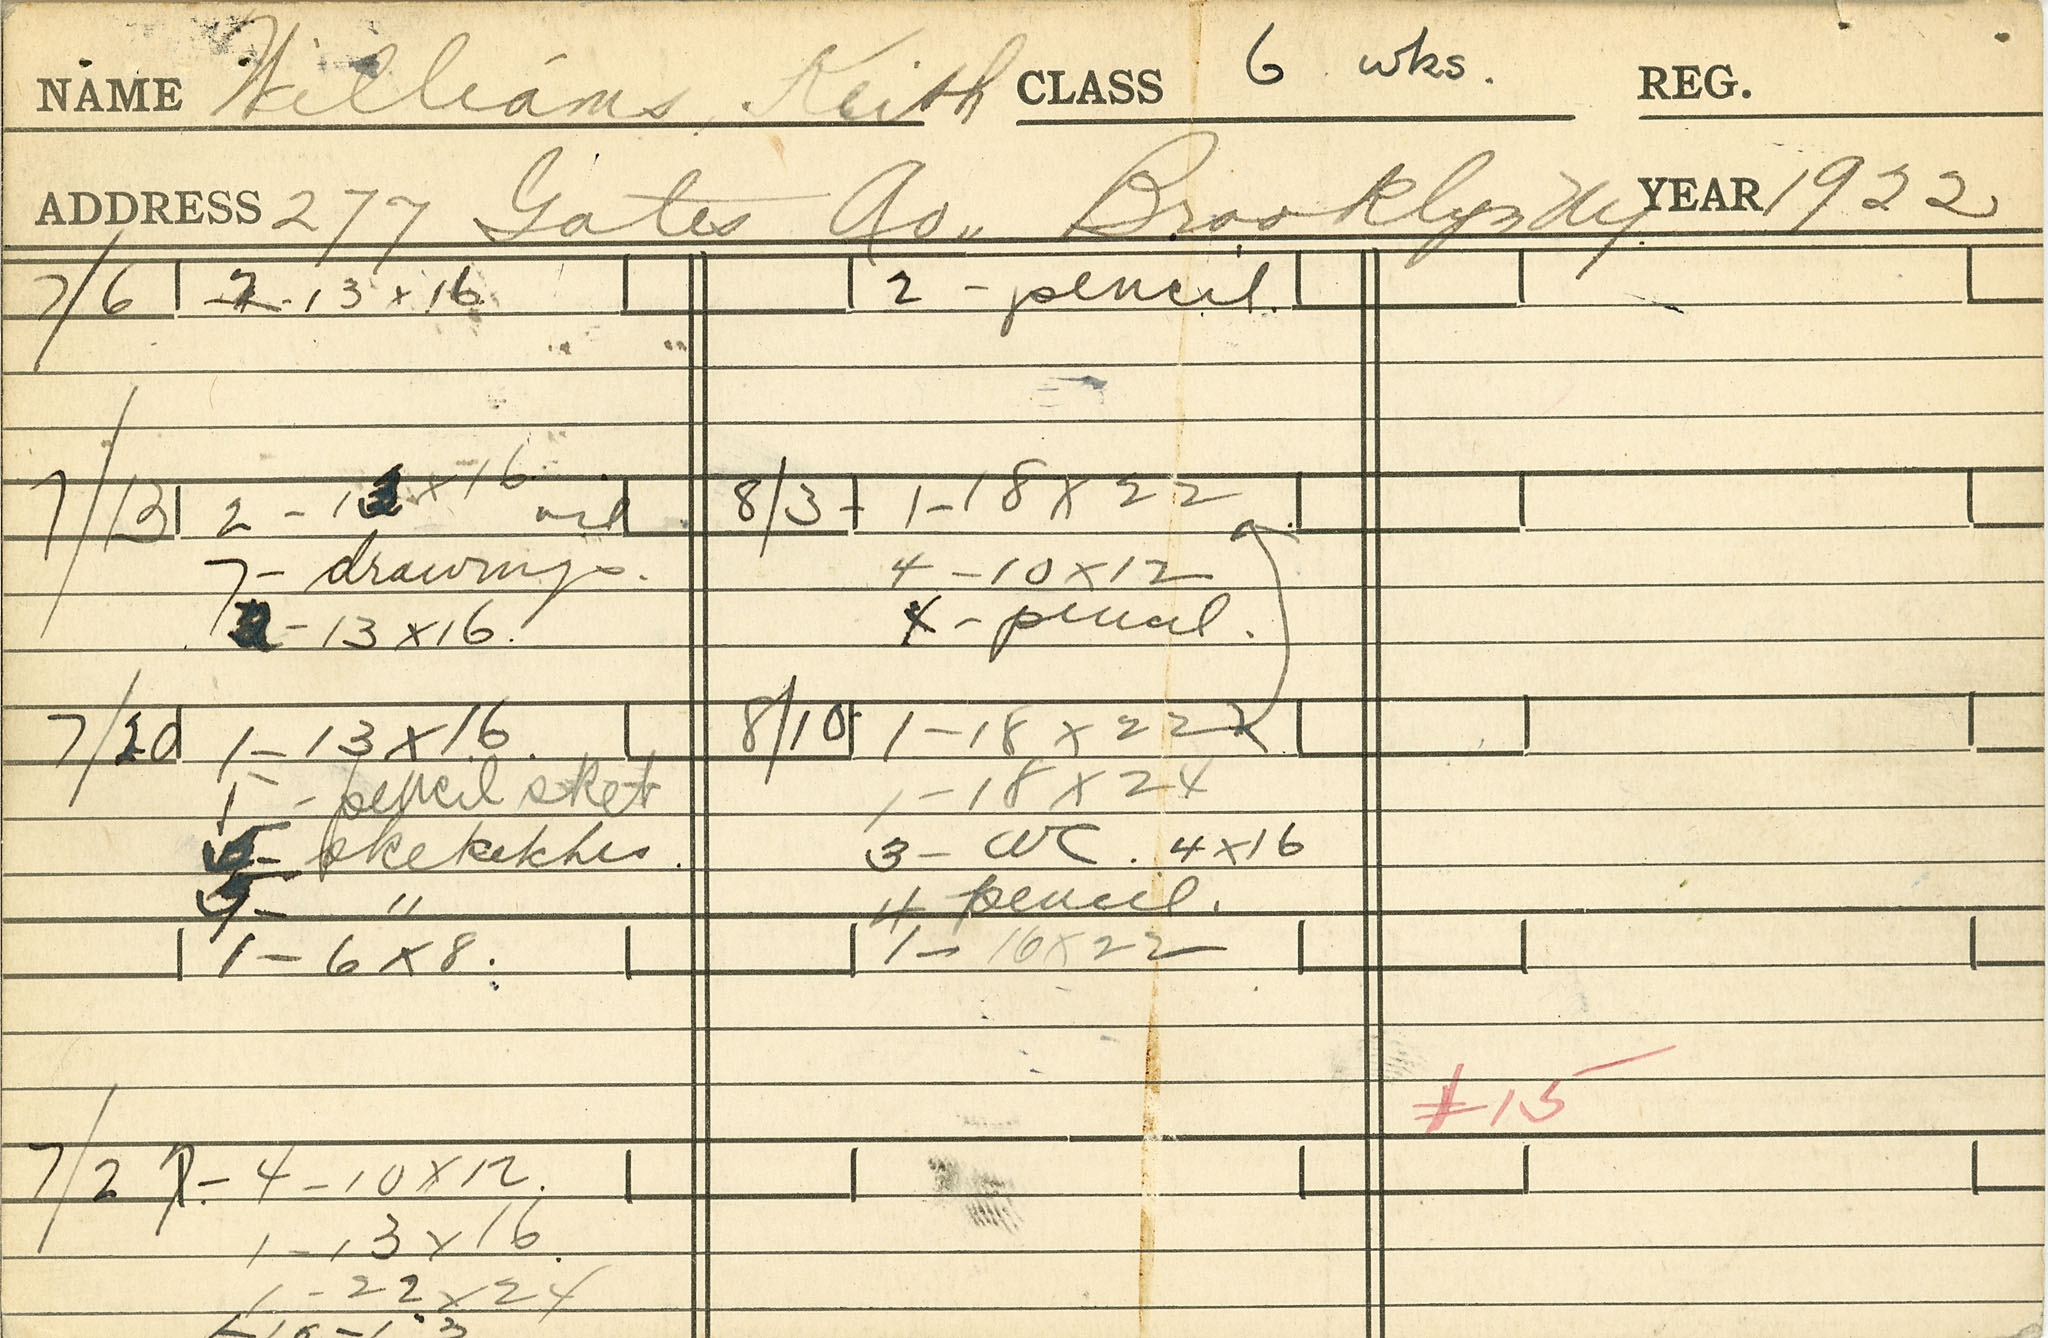 NAME Williams, Keith CLASS 6 wks. REG.
ADDRESS 277 Gates Av., Brooklyn Ny YEAR 1922
7/6 2 - 13 x 16
7/13 2 - 13 x 16 oil
7 - drawings.
2 - 13 x 16.
7/20 1 - 13 x 16.
1 - pencil sket
5 - skekekhes.
5 - "
1 - 6 x 8.
7/27 - 4 - 10 x 12.
1 - 13 x 16.
1 - 22 x 24
2 - pencil.
8/3 - 1 - 18 x 22
4 - 10 x 12
4 - pencil.
8/10 1 - 18 x 22
1 - 18 x 24
3 - WC. 4 x 16
4 pencil.
1 - 16 x 22
15